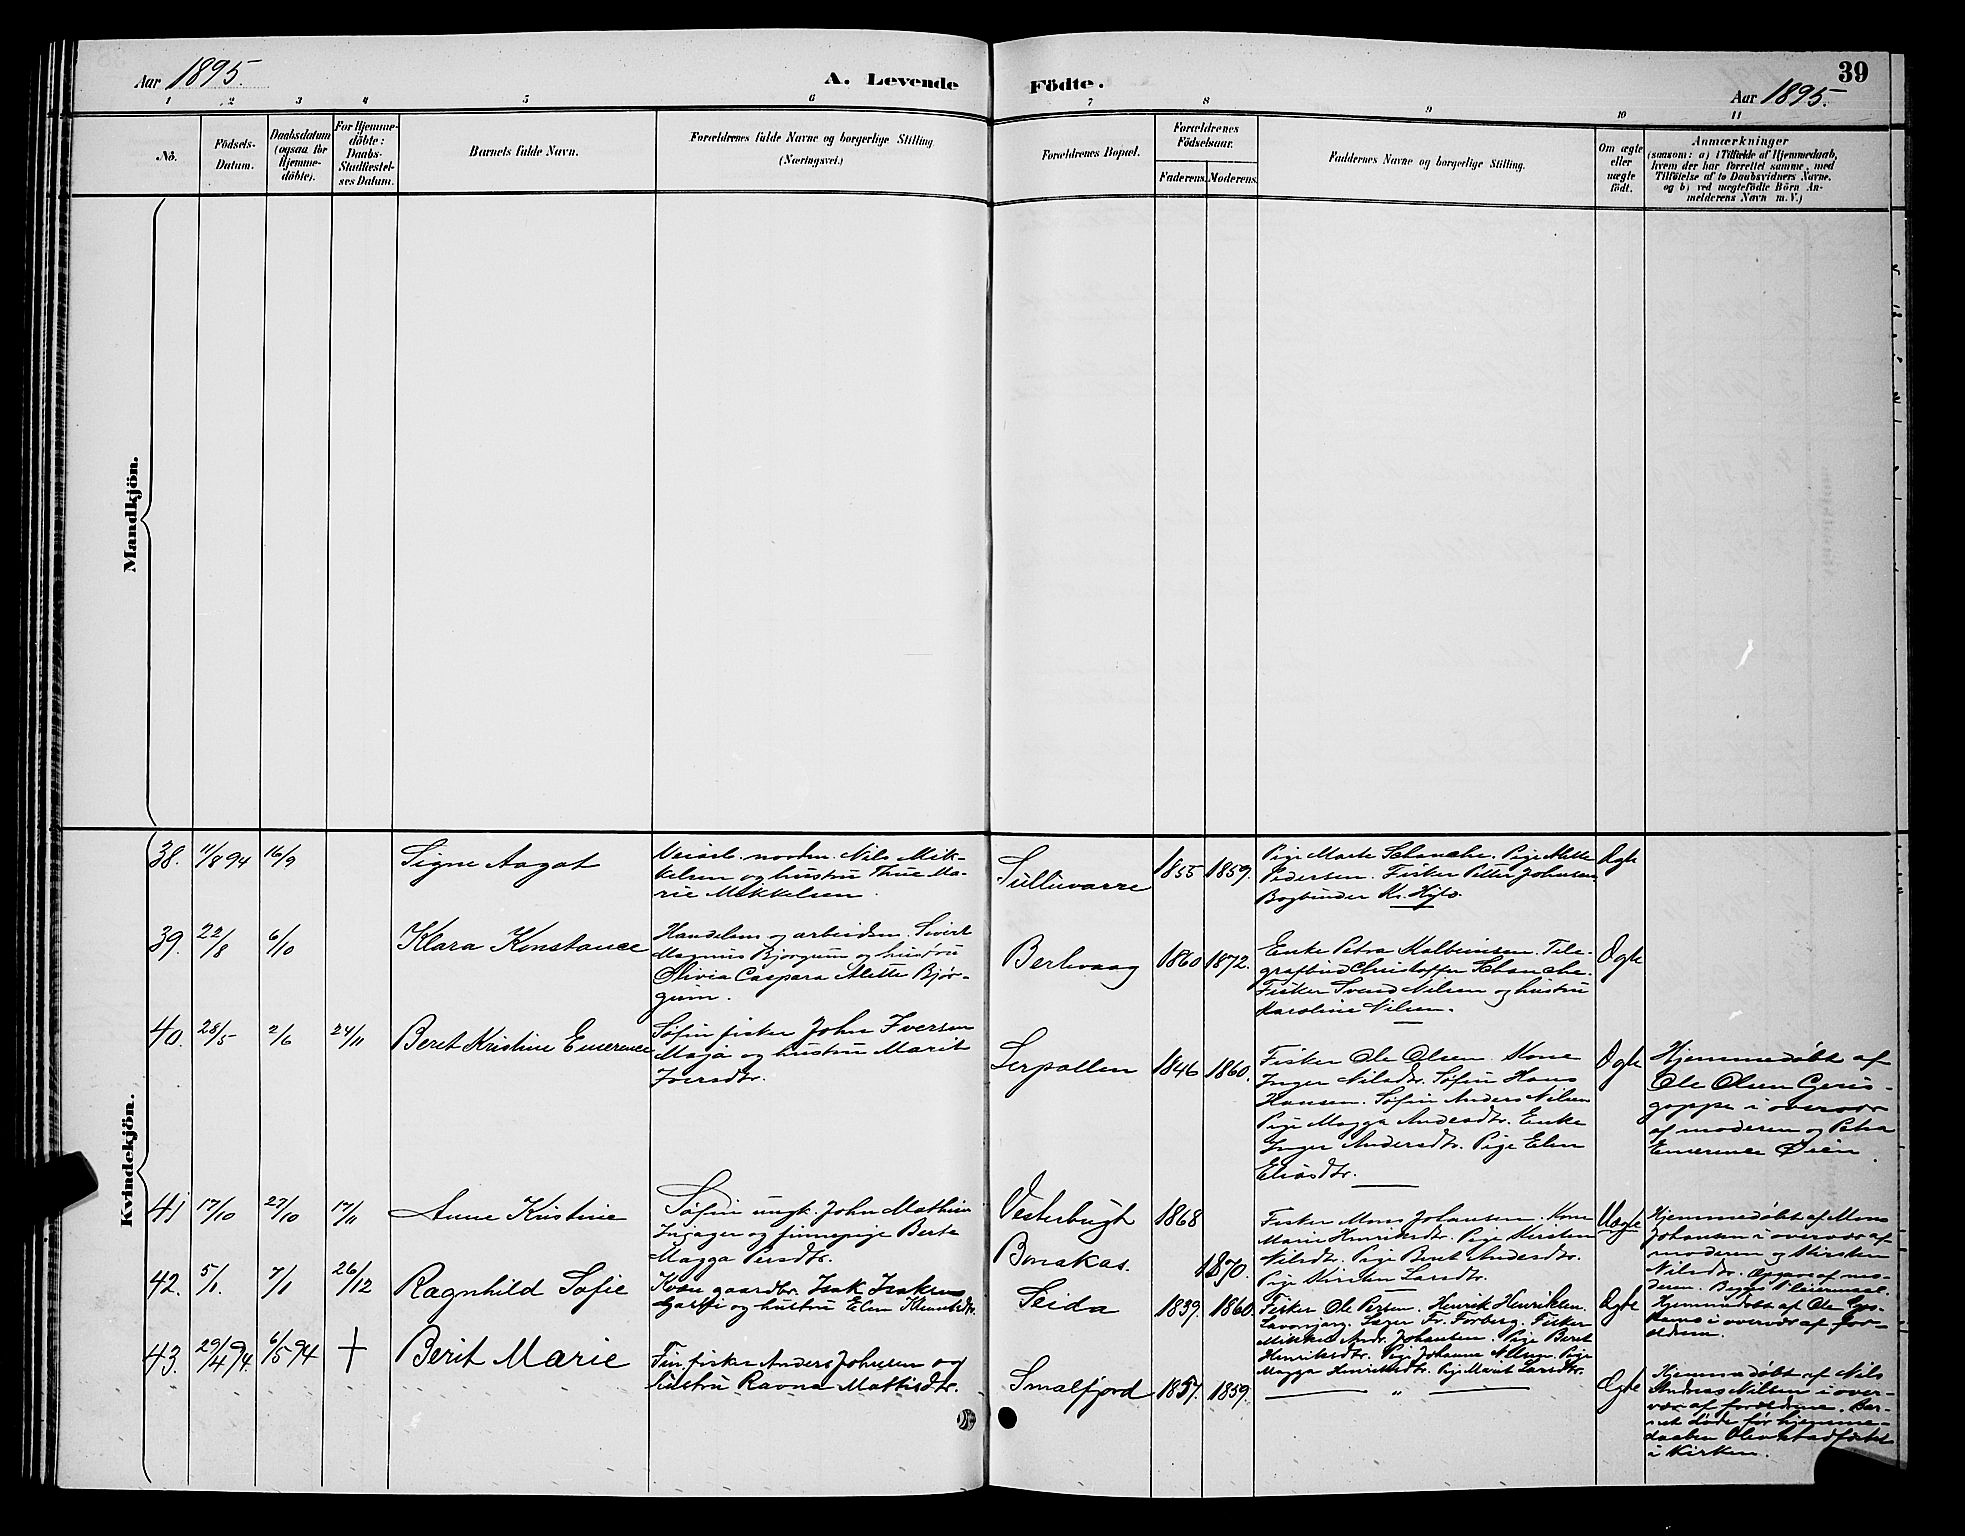 Aar 1895.
A. Levende
Födte.
39
Aar 1895.
1 2 3 4 5 6 7 8 9 10 11
No.
Födsels-
Datum.
Daabsdatum
(ogsaa for
Hjemme-
döbte).
For Hjemme-
döbte:
Daabs-
Stadfæstel-
ses Datum.
Barnets fulde Navn.
Forældrenes fulde Navne og borgerlige Stilling
(Næringsvei.)
Forældrenes Bopæl.
Forældrenes
Födselsaar.
Faderens. Moderens.
Faddernes Navne og borgerlige Stilling.
Om ægte
eller
uægte
födt.
Anmærkninger
(saasom: a) i Tilfælde af Hjemmedaab,
hvem der har forrettet samme, med
Tilföielse af to Daabsvidners Navne,
og b) ved uægtefödte Börn An-
melderens Navn m. V.)
Mandkjön.
Kvindekjön.
38. 11/8 94 16/9
Signe Aagot
Veiarb. nordm. Nils Mik-
kelsen og hustru Thue Ma-
rie Mikkelsen.
Sulluvarre
1855 1859.
Pige Marte Schanche. Pige Mette
Pedersen. Fisker Petter Johnsen
Bogbinder Kr. Höjlo.
Ægte
39. 22/8 6/10
Klara Konstance
Handelsm. og arbeidsm. Sivert
Magnus Bjørgum og hustru
Olivia Caspara Mette Bjør-
gum.
Berlevaag
1860 1872.
Enke Petra Kalbeinsen. Tele-
grafbud Christoffer Schanche.
Fisker Svend Nilsen og hustru
Karoline Nilsen.
Ægte
40. 28/5 2/6 24/11
Beret Kristine Emerence
Søfin fisker John Iversen
Maja og hustru Marit
Iversdtr.
Lerpollen
1846 1860.
Fisker Ole Olsen. Kone
Inger Nilsdtr. Søfin Hans
Hansen. Søfin Anders Nilsen
Pige Magga Andersdtr. Enke
Inger Andersdtr. Pige Elen
Eliasdtr.
Ægte
Hjemmedøbt af
Ole Olsen
i overvær
af moderen og Petra
Emerence Øien.
41 17/10 27/10 17/11
Anne Kristine
Søfin ungk. John Mathisen
Ingager og finnepige Berte
Magga Persdtr.
Vesterbugt
Bonakas.
1868
1870.
Fisker Mons Johansen. Kone
Marie Henriksdtr. Pige Kirsten
Nilsdtr. Pige Beret Andersdtr.
Pige Kirsten Larsdtr.
Uægte
Hjemmedøbt af Mons
Johansen i overvær af
moderen og Kirsten
Nilsdtr. Opgav. af mo-
deren. Begges 1 leiermaal.
42. 5/1. 7/1 26/12
Ragnhild Sofie
Kvæn gaardbr. Isak Isaksen
Garfi og hustru Elen Klemetsdtr.
Seida
1839. 1860.
Fisker Ole Persen. Henrik Henriksen.
Lavonjarg. Læger Fr. Forberg. Fisker
Mikkel Andr. Johansen. Pige Beret
Henriksdtr. Pige Johanne Nilsen. Pige
Magga Henriksdtr. Pige Marit Larsdtr.
Ægte
Hjemmedøbt af Ole
i overvær af for-
ældrene.
43. 29/4 94. 6/5 94 +
Berit Marie
Fin. fisker Anders Johnsen og
hustru Ravna Mattisdtr.
Smalfjord
1857. 1859.
"
Ægte
Hjemmedøbt af Nils
Andreas Nilsen i over-
vær af forældrene. Bar-
net døde før hjemme-
daaben blev stadfæstet
i Kirken.